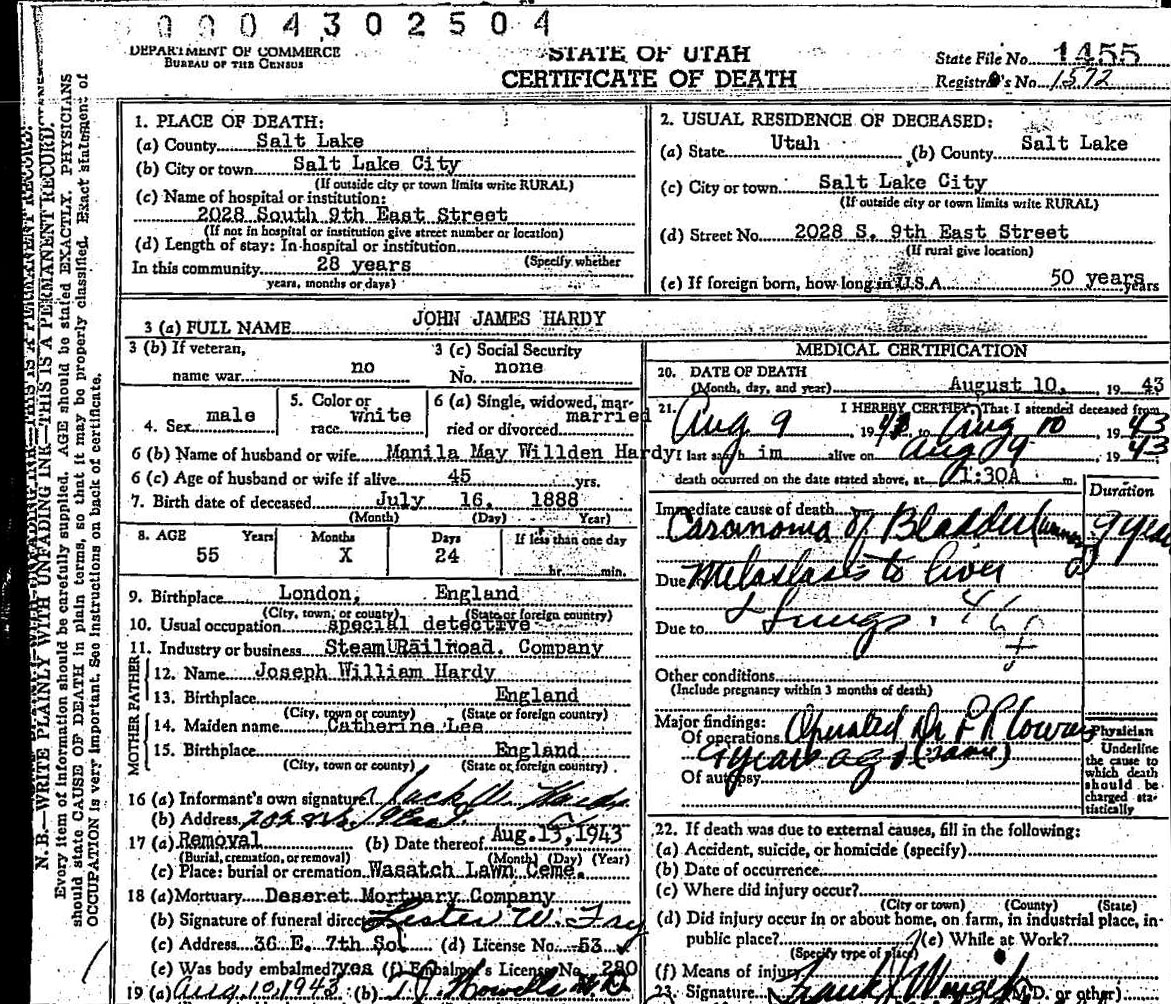 0004302504
DEPARTMENT OF COMMERCE
BUREAU OF THE CENSUS
STATE OF UTAH
CERTIFICATE OF DEATH
State File No. 1455
Registrar's No. 1572
N. B.—WRITE PLAINLY WITH UNFADING INK—THIS IS A PERMANENT RECORD.
Every item of information should be carefully supplied. AGE should be stated EXACTLY. PHYSICIANS
should state CAUSE OF DEATH in plain terms, so that it may be properly classified. Exact statement of
OCCUPATION is very important. See instructions on back of certificate.
1. PLACE OF DEATH:
(a) County Salt Lake
(b) City or town Salt Lake City
(If outside city or town limits write RURAL)
(c) Name of hospital or institution:
2028 South 9th East Street
(If not in hospital or institution give street number or location)
(d) Length of stay: In hospital or institution
(Specify whether
In this community 28 years
years, months or days)
2. USUAL RESIDENCE OF DECEASED:
(a) State Utah (b) County Salt Lake
(c) City or town Salt Lake City
(If outside city or town limits write RURAL)
(d) Street No. 2028 S. 9th East Street
(If rural give location)
(e) If foreign born, how long in U.S.A. 50 years years
3 (a) FULL NAME JOHN JAMES HARDY
3 (b) If veteran,
name war no
3 (c) Social Security
No. none
4. Sex male
5. Color or
race white
6 (a) Single, widowed, mar-
ried or divorced married
6 (b) Name of husband or wife Manila May Willden Hardy
6 (c) Age of husband or wife if alive 45 yrs.
7. Birth date of deceased July 16, 1888
(Month) (Day) Year)
8. AGE Years Months Days If less than one day
55 X 24 hr. min.
9. Birthplace London, England
(City, town, or county) (State or foreign country)
10. Usual occupation special detective
11. Industry or business Steam Railroad. Company
FATHER
12. Name Joseph William Hardy
13. Birthplace England
(City, town or county) (State or foreign country)
MOTHER
14. Maiden name Catherine Lee
15. Birthplace England
(City, town or county) (State or foreign country)
16 (a) Informant's own signature Jack W. Hardy
(b) Address
17 (a) Removal (b) Date thereof Aug. 13, 1943
(Burial, cremation, or removal) (Month) (Day) (Year)
(c) Place: burial or cremation Wasatch Lawn Ceme.
18 (a) Mortuary Deseret Mortuary Company
(b) Signature of funeral director Lester W. Fry
(c) Address 36 E. 7th So. (d) License No. 53
(e) Was body embalmed? yes (f) Embalmer's License No. 280
19 (a) Aug 10, 1943 (b) T. J. Howells M D
MEDICAL CERTIFICATION
20. DATE OF DEATH
(Month, day, and year) August 10, 19 43
21. I HEREBY CERTIFY, That I attended deceased from
Aug 9, 19 to Aug 10, 19 43
I last saw h im alive on Aug 9 19 43
death occurred on the date stated above, at 1:30A m.
Duration
Immediate cause of death
Carcinoma of Bladder 9 years
Due Metastasis to liver
Due to & Lungs.
Other conditions
(Include pregnancy within 3 months of death)
Major findings:
Of operations Operated Dr
years ago
Of autopsy
Physician
Underline
the cause to
which death
should be
charged sta-
tistically
22. If death was due to external causes, fill in the following:
(a) Accident, suicide, or homicide (specify)
(b) Date of occurrence
(c) Where did injury occur?
(City or town) (County) (State)
(d) Did injury occur in or about home, on farm, in industrial place, in-
public place? (e) While at Work?
(Specify type of place)
(f) Means of injury
23. Signature Frank (M.D. or other)